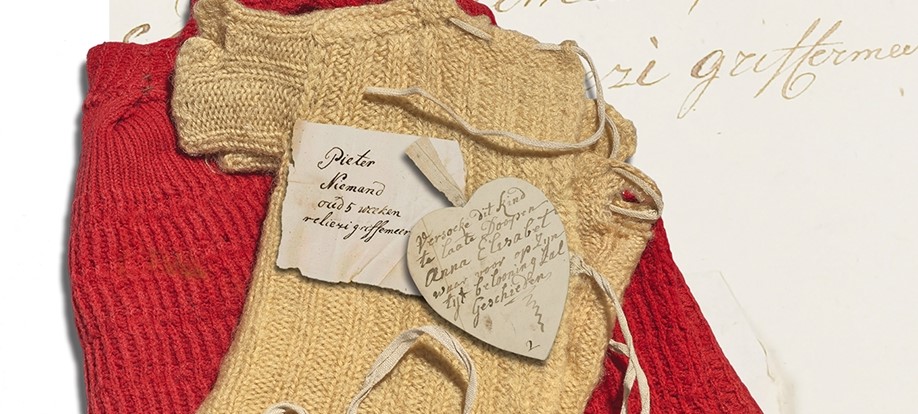 zi griffermee
Pieter
Niemand
oud 5 weeken
reliezi griffemeer
Versoeke dit kind
te laate Doopen
Anna Elisabet
waar voor op Zijn
tijt belooning Zal
Geschieden
2